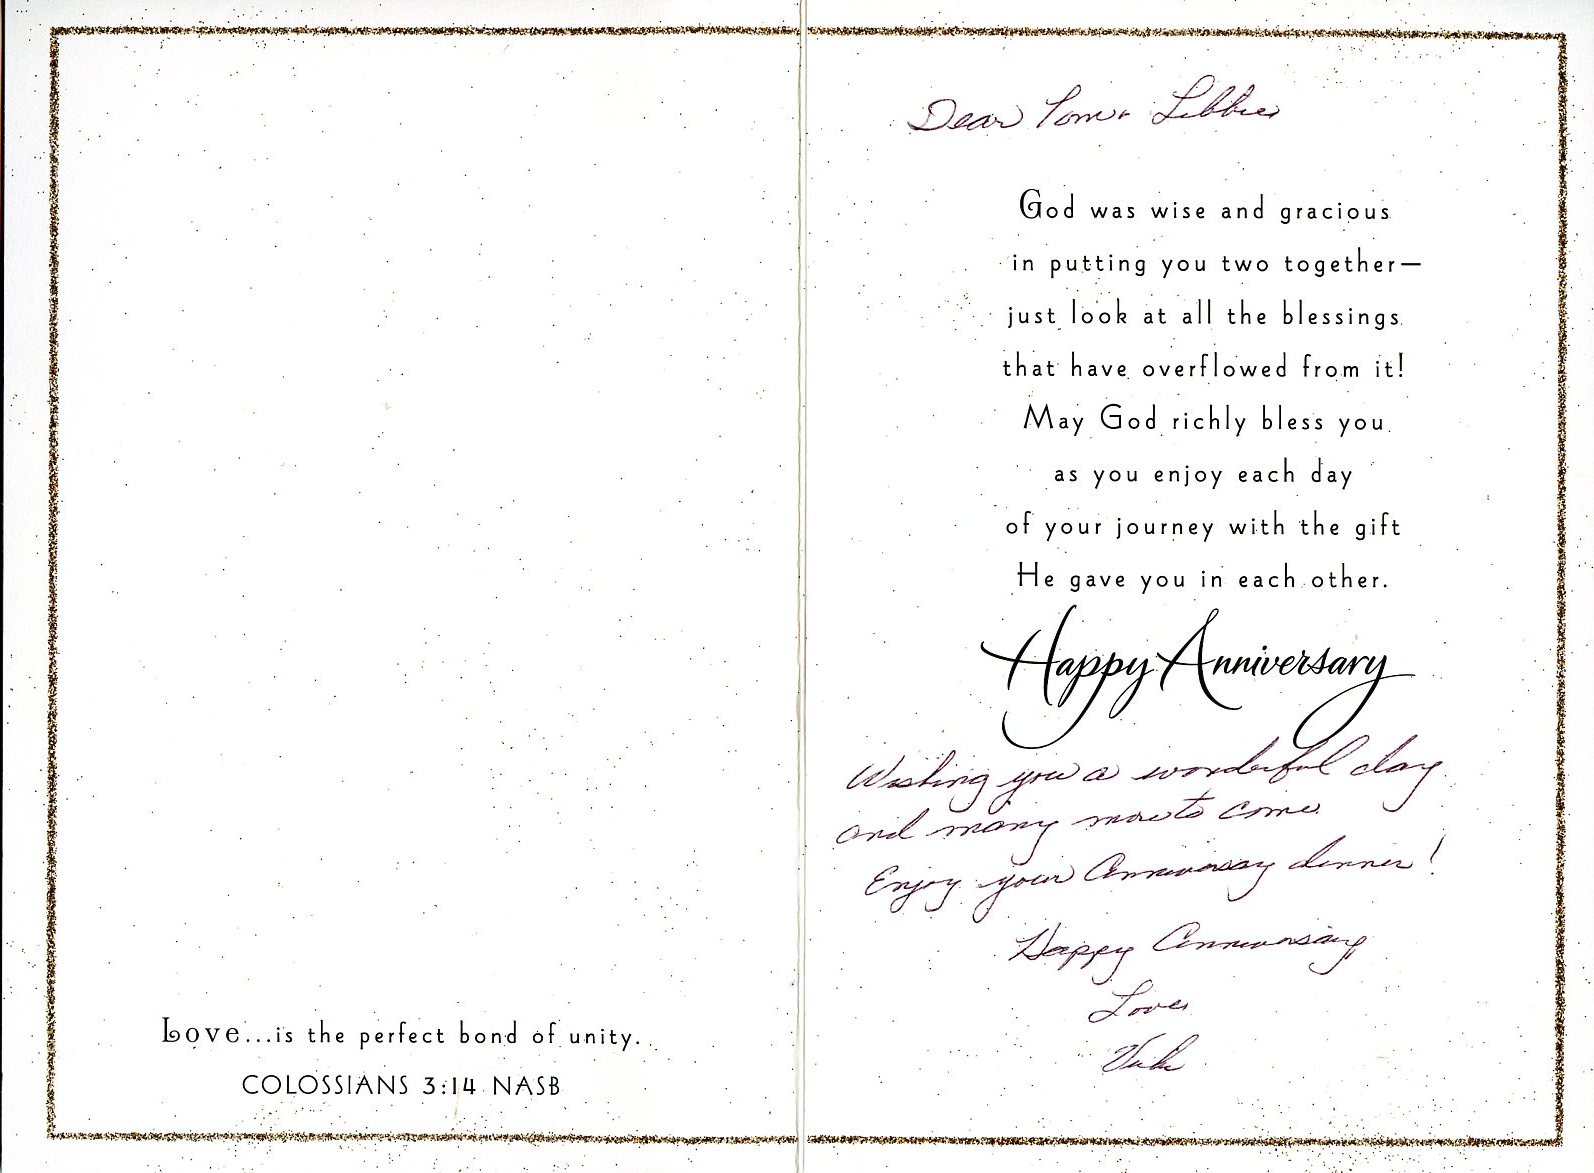 Love...is the perfect bond of unity.
COLOSSIANS 3:14 NASB
Dear Tom + Libbie
God was wise and gracious
in putting you two together—
just look at all the blessings
that have overflowed from it!
May God richly bless you
as you enjoy each day
of your journey with the gift
He gave you in each other.
Happy Anniversary
Wishing you a wonderful day
and many more to come.
Enjoy your Anniversary dinner!
Happy Anniversary
Love